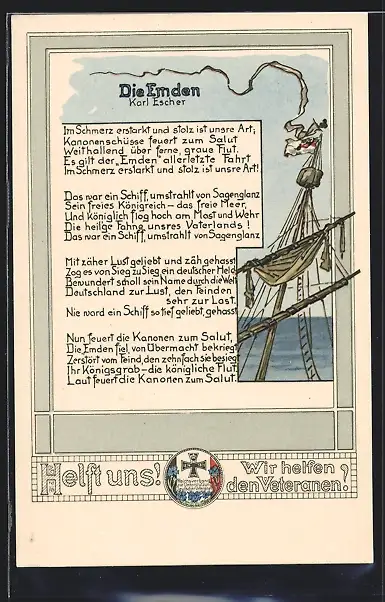 Die Emden
Karl Escher
Im Schmerz erstarkt und stolz ist unsre Art;
Kanonenschüsse feuert zum Salut
Weithallend über ferne, graue Flut.
Es gilt der „Emden" allerletzte Fahrt
Im Schmerz erstarkt und stolz ist unsre Art!
Das war ein Schiff, umstrahlt von Sagenglanz
Sein freies Königreich – das freie Meer,
Und Königlich flog hoch am Mast und Wehr
Die heilge Fahne unsres Vaterlands!
Das war ein Schiff, umstrahlt von Sagenglanz
Mit zäher Lust geliebt und zäh gehasst
Zog es von Sieg zu Sieg ein deutscher Held
Bewundert scholl sein Name durch die Welt
Deutschland zur Lust, den Feinden
sehr zur Last.
Nie ward ein Schiff so tief geliebt, gehasst
Nun feuert die Kanonen zum Salut,
Die Emden fiel, von Übermacht bekriegt
Zerstört vom Feind, den zehnfach sie besiegt
Ihr Königsgrab – die königliche Flut.
Laut feuert die Kanonen zum Salut.
Helft uns! Wir helfen
den Veteranen!